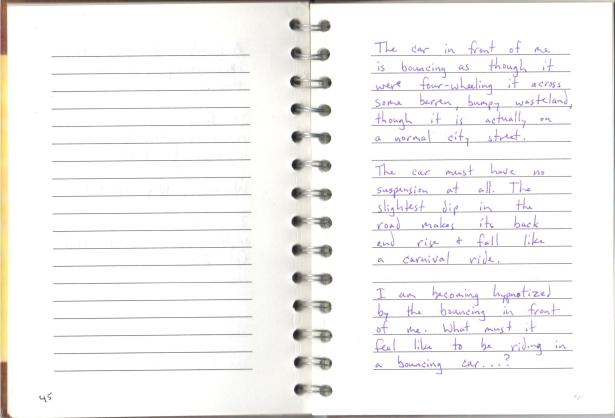 The car in front of me
is bouncing as though it
were four-wheeling it across
some barren, bumpy wasteland,
though it is actually on
a normal city street.
The car must have no
suspension at all. The
slightest dip in the
road makes its back
end rise + fall like
a carnival ride.
I am becoming hypnotized
by the bouncing in front
of me. What must it
feel like to be riding in
a bouncing car...?
45